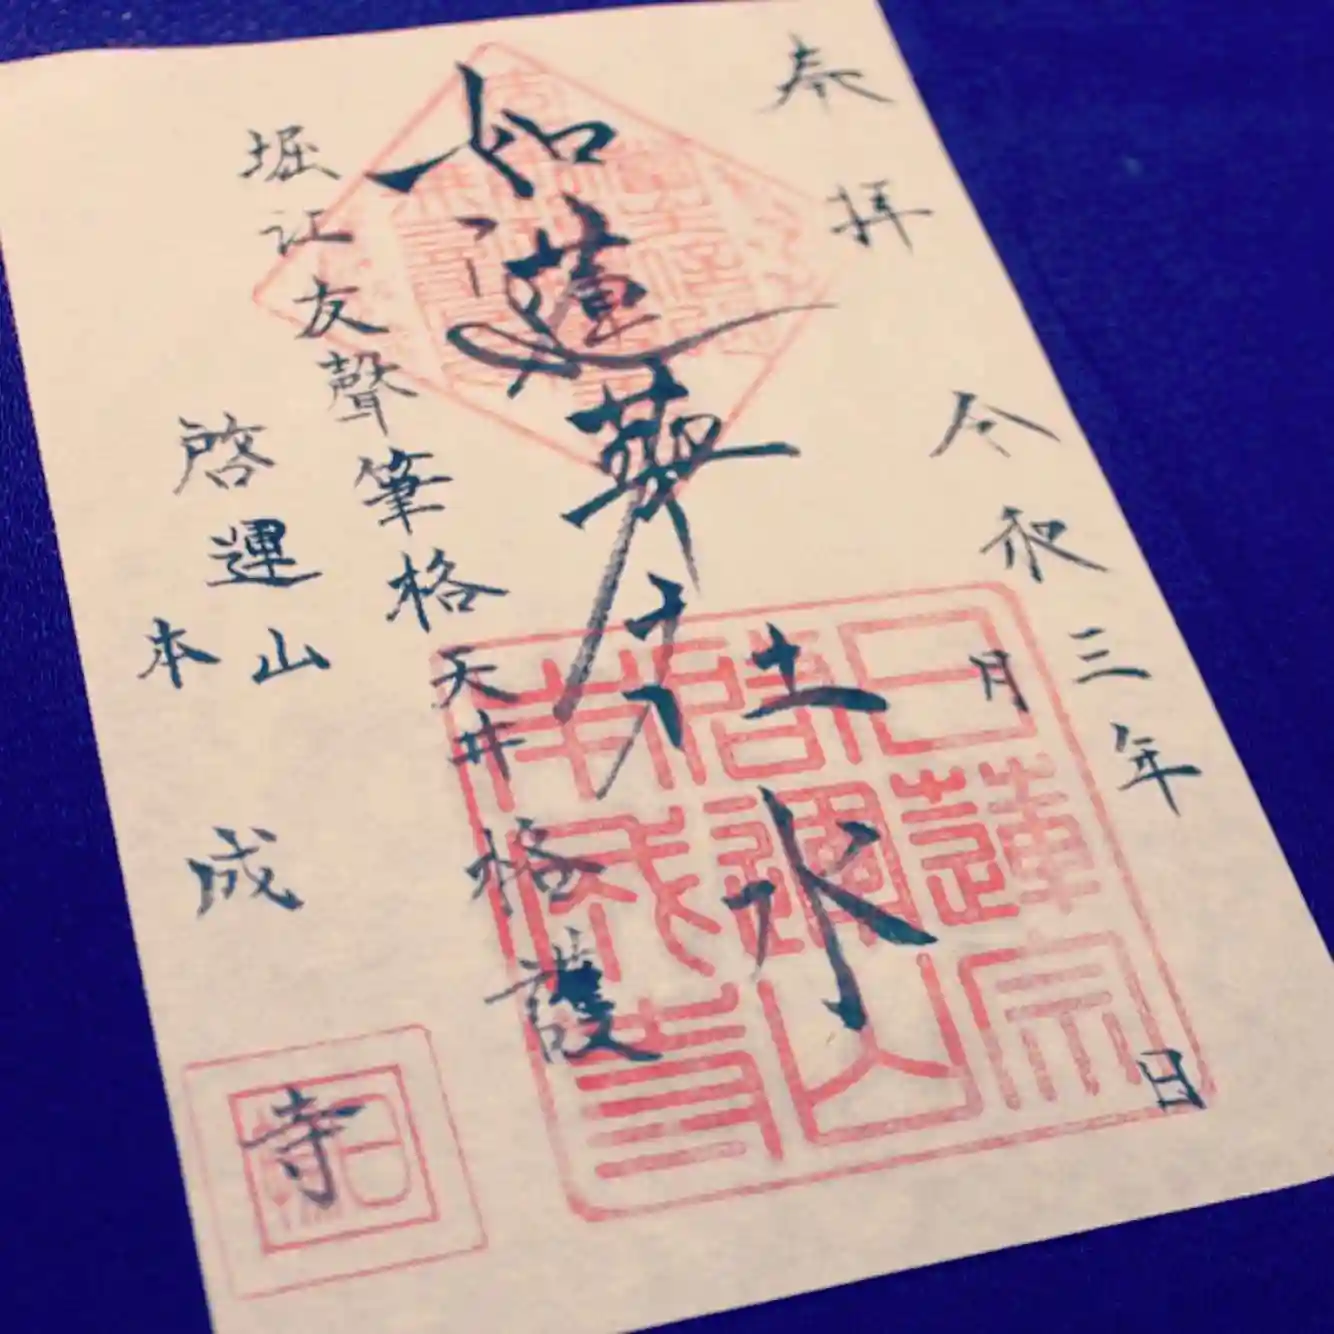 奉拝　令和三年
月　日
如蓮華在水
堀江友聲筆格天井格護
啓運山
本成寺
日蓮宗
啓運山
本成寺